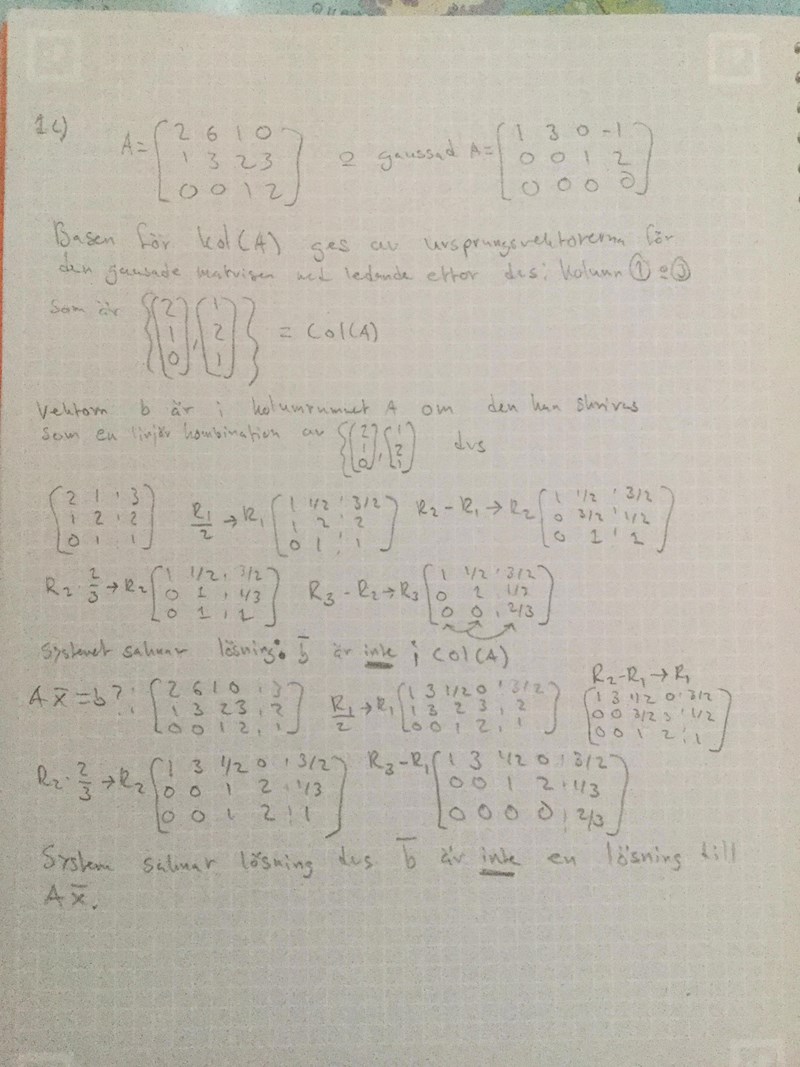 1c)
A = [2 6 1 0; 1 3 2 3; 0 0 1 2] o gaussad A = [1 3 0 -1; 0 0 1 2; 0 0 0 0]
Basen för kol(A) ges av ursprungsvektorerna för
den gausade matrisen med ledande ettor dvs: kolumn ① o ③
som är {[2; 1; 0], [1; 2; 1]} = Col(A)
Vektorn b är i kolumrummet A om den kan skrivas
som en linjär kombination av {[2; 1; 0], [1; 2; 1]} dvs
[2 1 | 3; 1 2 | 2; 0 1 | 1] R1/2 → R1 [1 1/2 | 3/2; 1 2 | 2; 0 1 | 1] R2 - R1 → R2 [1 1/2 | 3/2; 0 3/2 | 1/2; 0 1 | 1]
R2 · 2/3 → R2 [1 1/2 | 3/2; 0 1 | 1/3; 0 1 | 1] R3 - R2 → R3 [1 1/2 | 3/2; 0 1 | 1/2; 0 0 | 2/3]
Systemet saknar lösning: b̄ är inte i Col(A)
A x̄ = b?: [2 6 1 0 | 3; 1 3 2 3 | 2; 0 0 1 2 | 1] R1/2 → R1 [1 3 1/2 0 | 3/2; 1 3 2 3 | 2; 0 0 1 2 | 1] R2 - R1 → R1 [1 3 1/2 0 | 3/2; 0 0 3/2 3 | 1/2; 0 0 1 2 | 1]
R2 · 2/3 → R2 [1 3 1/2 0 | 3/2; 0 0 1 2 | 1/3; 0 0 1 2 | 1] R3 - R1 [1 3 1/2 0 | 3/2; 0 0 1 2 | 1/3; 0 0 0 0 | 2/3]
System saknar lösning dvs b̄ är inte en lösning till
A x̄.